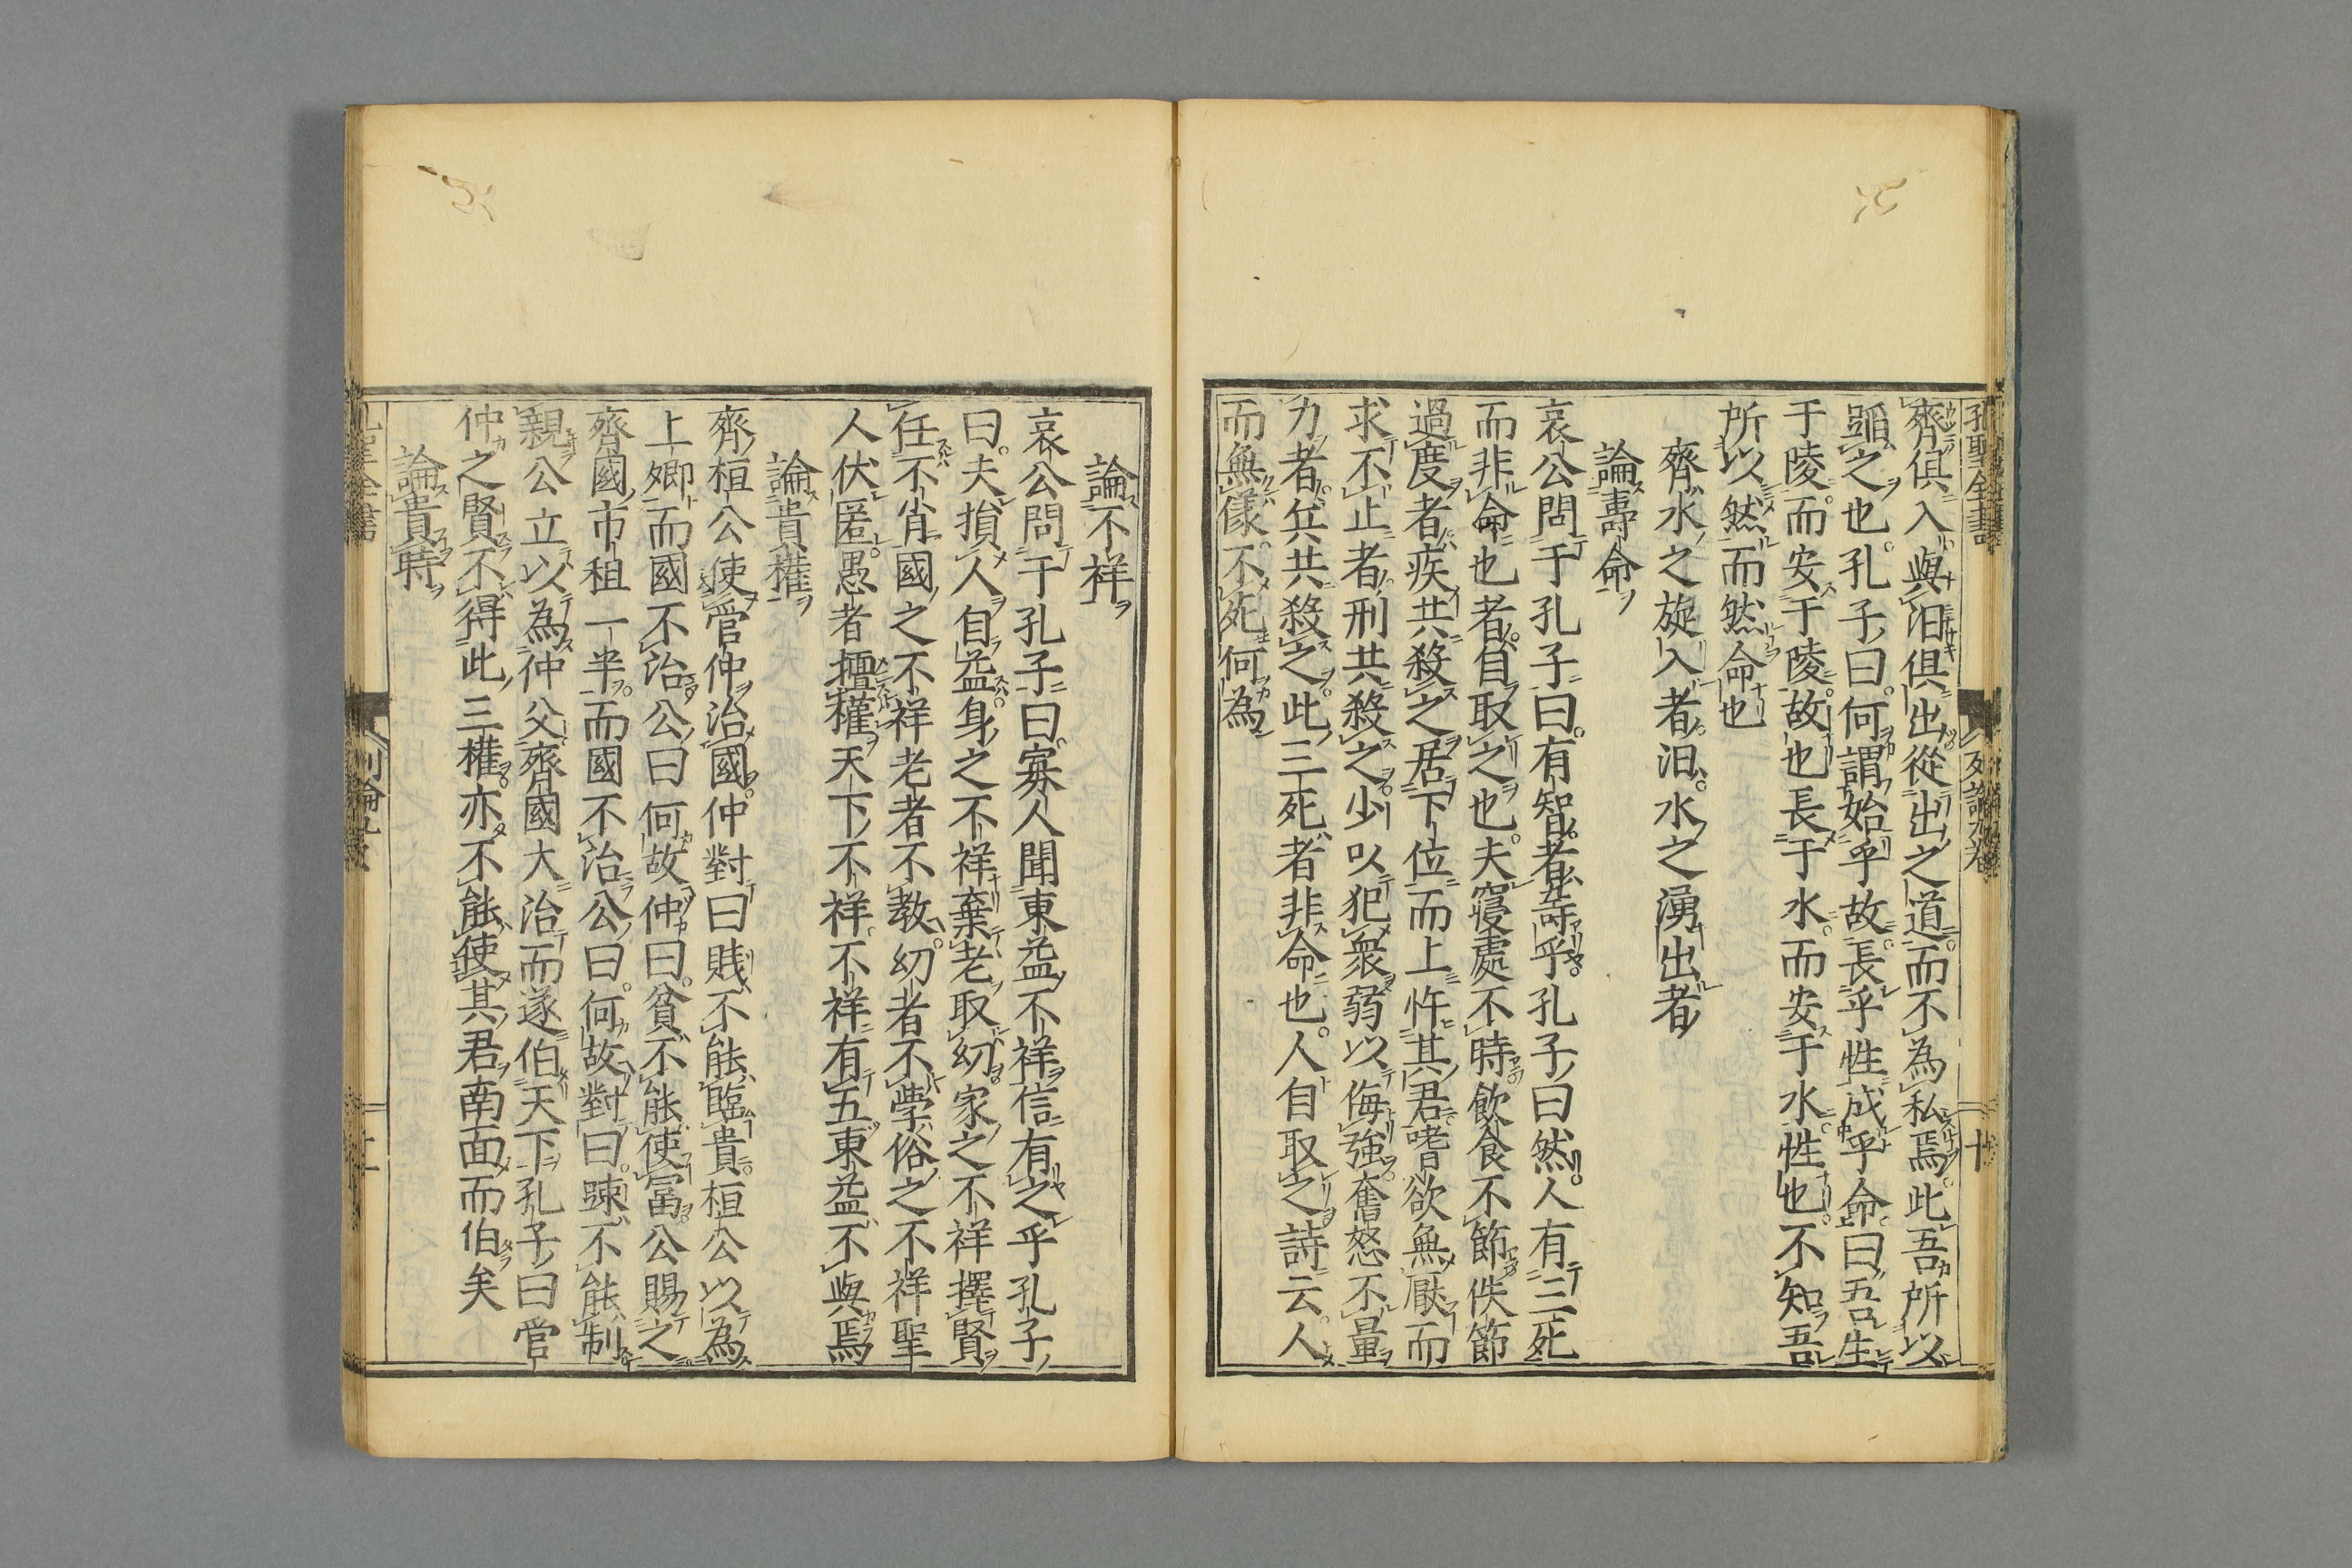 孔聖全書
齊俱入與汩俱出從出之道而不為私焉此吾所以
蹈之也孔子曰何謂始乎故長乎性成乎命曰吾生
于陵而安于陵故也長于水而安于水性也不知吾
所以然而然命也
齊水之旋入者汩水之湧出者
論壽命
哀公問于孔子曰有智者壽乎孔子曰然人有三死
而非命也者自取之也夫寢處不時飲食不節佚節
過度者疾共殺之居下位而上忤其君嗜欲無厭而
求不止者刑共殺之少以犯衆弱以侮強奮怒不量
力者兵共殺之此三死者非命也人自取之詩云人
而無儀不死何為
論不祥
哀公問于孔子曰寡人聞東益不祥信有之乎孔子
曰夫損人自益身之不祥棄老取幼家之不祥擇賢
任不肖國之不祥老者不教幼者不學俗之不祥聖
人伏匿愚者擅權天下不祥不祥有五東益不與焉
論貴權
齊桓公使管仲治國仲對曰賎不能臨貴桓公以為
上卿而國不治公曰何故仲曰貧不能使富公賜之
齊國市租一半而國不治公曰何故對曰踈不能制
親公立以為仲父齊國大治而遂伯天下孔子曰管
仲之賢不得此三權亦不能使其君南面而伯矣
論貴時